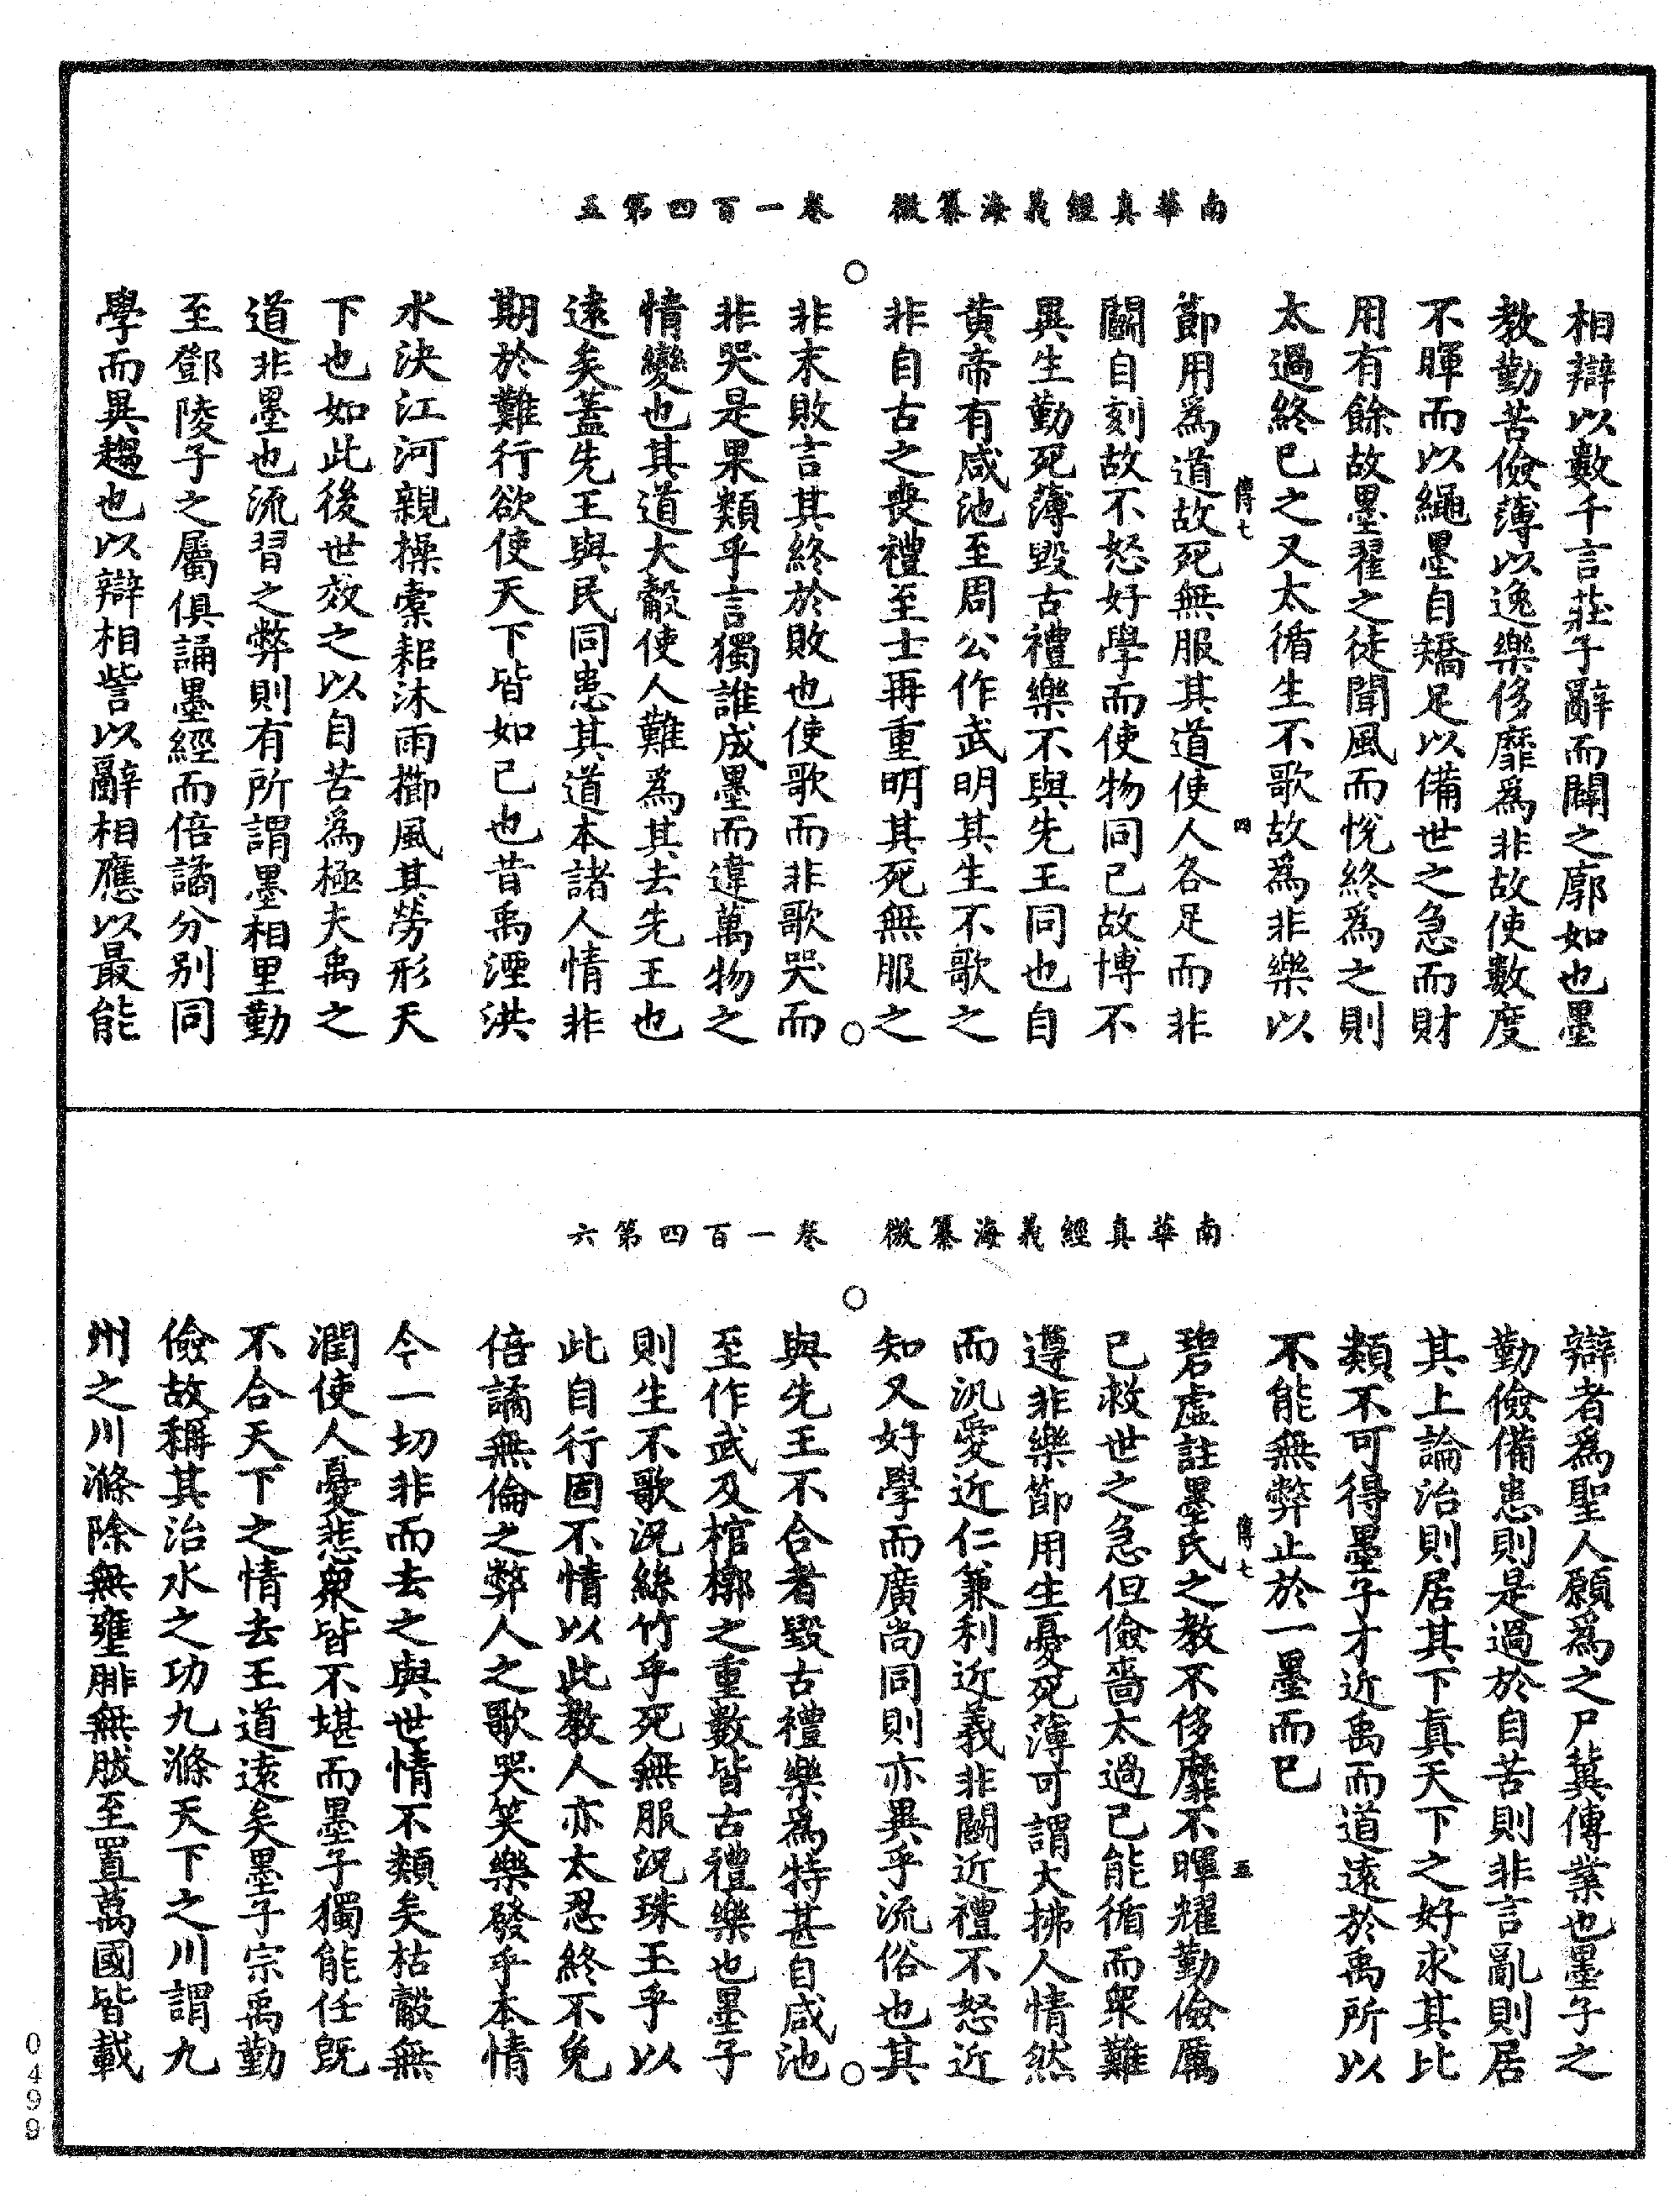 南華真經義海纂微　卷一百四第五
相辯以數千言莊子辭而闢之廓如也墨
教勤苦儉薄以逸樂侈靡爲非故使數度
不暉而以繩墨自矯足以備世之急而財
用有餘故墨翟之徒聞風而悅終爲之則
太過終已之又太循生不歌故爲非樂以
傳七　四
節用爲道故死無服其道使人各足而非
鬭自刻故不怒好學而使物同己故博不
異生勤死薄毀古禮樂不與先王同也自
黄帝有咸池至周公作武明其生不歌之
非自古之喪禮至士再重明其死無服之
○　○
非末敗言其終於敗也使歌而非歌哭而
非哭是果類乎言獨誰成墨而違萬物之
情變也其道大觳使人難爲其去先王也
遠矣蓋先王與民同患其道本諸人情非
期於難行欲使天下皆如己也昔禹湮洪
水決江河親操橐耜沐雨櫛風其勞形天
下也如此後世效之以自苦爲極夫禹之
道非墨也流習之弊則有所謂墨相里勤
至鄧陵子之屬俱誦墨經而倍譎分别同
學而異趨也以辯相訾以辭相應以最能
南華真經義海纂微　卷一百四第六
辯者爲聖人願爲之尸冀傳業也墨子之
勤儉備患則是過於自苦則非言亂則居
其上論治則居其下真天下之好求其比
類不可得墨子才近禹而道遠於禹所以
不能無弊止於一墨而已
傳七　五
碧虛註墨氏之教不侈靡不暉耀勤儉厲
已救世之急但儉嗇太過已能循而衆難
遵非樂節用生憂死薄可謂大拂人情然
而汎愛近仁兼利近義非鬭近禮不怒近
知又好學而廣尚同則亦異乎流俗也其
○　○
與先王不合者毀古禮樂爲特甚自咸池
至作武及棺槨之重數皆古禮樂也墨子
則生不歌況絲竹乎死無服況珠玉乎以
此自行固不情以此教人亦太忍終不免
倍譎無倫之弊人之歌哭笑樂發乎本情
今一切非而去之與世情不類矣枯觳無
潤使人憂悲衆皆不堪而墨子獨能任旣
不合天下之情去王道遠矣墨子宗禹勤
儉故稱其治水之功九滌天下之川謂九
州之川滌除無壅腓無胈至置萬國皆載
0499